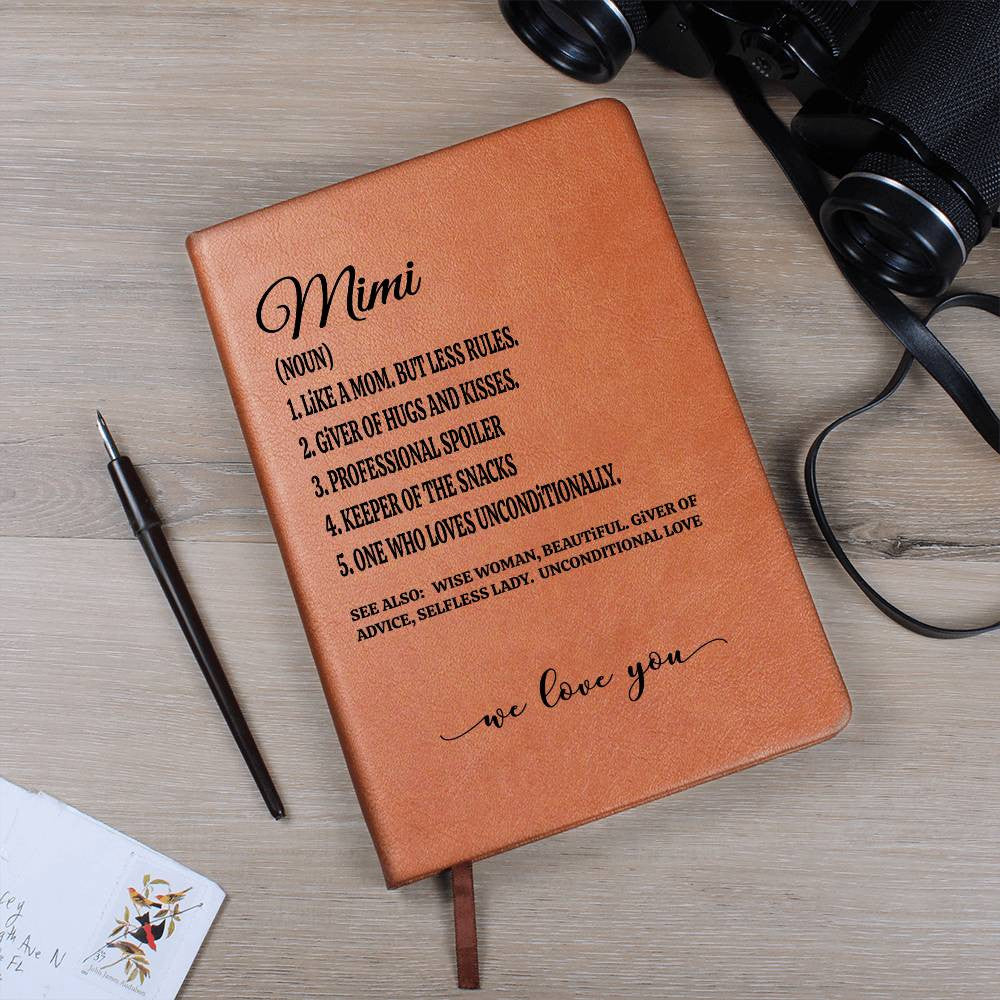 Mimi
(NOUN)
1. LiKE A MOM. BUT LESS RULES.
2. GiVER OF HUGS AND KISSES.
3. PROFESSIONAL SPOILER
4. KEEPER OF THE SNACKS
5. ONE WHO LOVES UNCONDiTIONALLY.
SEE ALSO: WISE WOMAN, BEAUTiFUL. GiVER OF
ADVICE, SELFLESS LADY. UNCONDITIONAL LOVE
we love you
Ave N
FL
37
John James Audubon